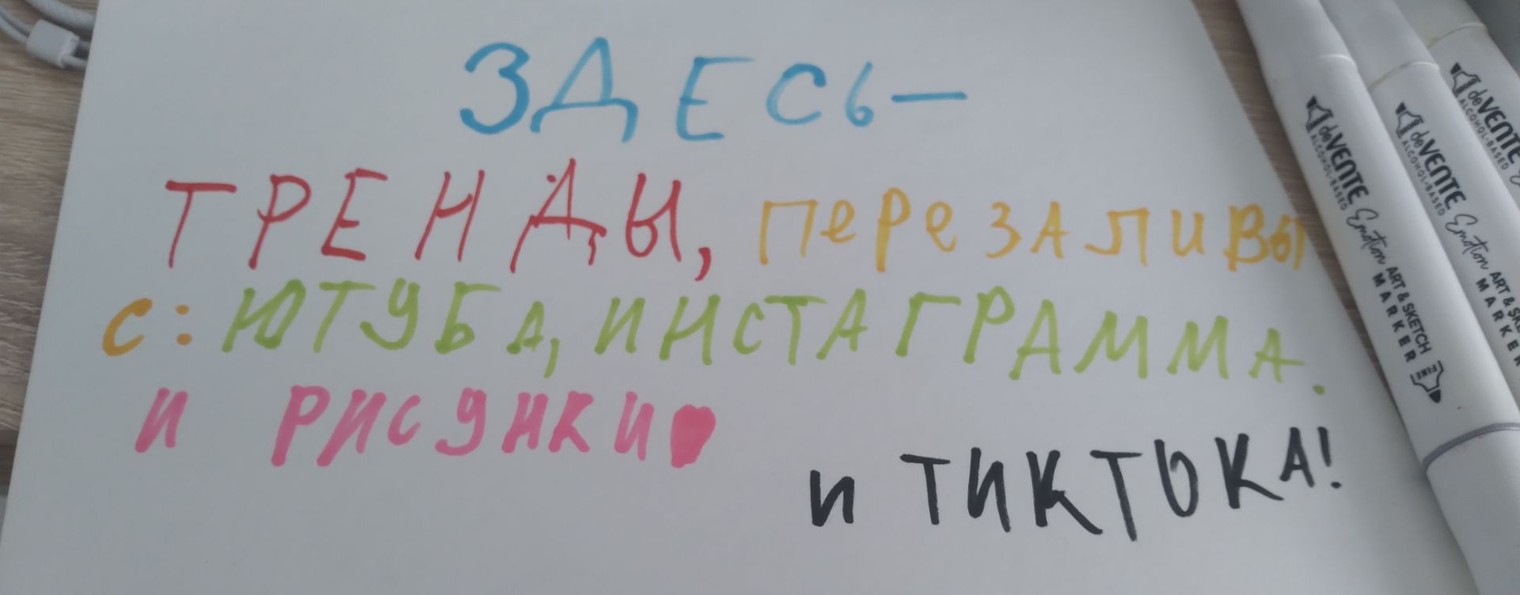 ЗДЕСЬ—
ТРЕНДЫ, перезаливы
с: ЮТУБА, ИНСТАГРАММА.
и рисунки
и ТИКТОКА!
deVENTE
ALCOHOL-BASED
Emotion ART & SKETCH
MARKER
FINE
deVENTE
ALCOHOL-BASED
Emotion
deVENTE
ALCOHOL-BASED